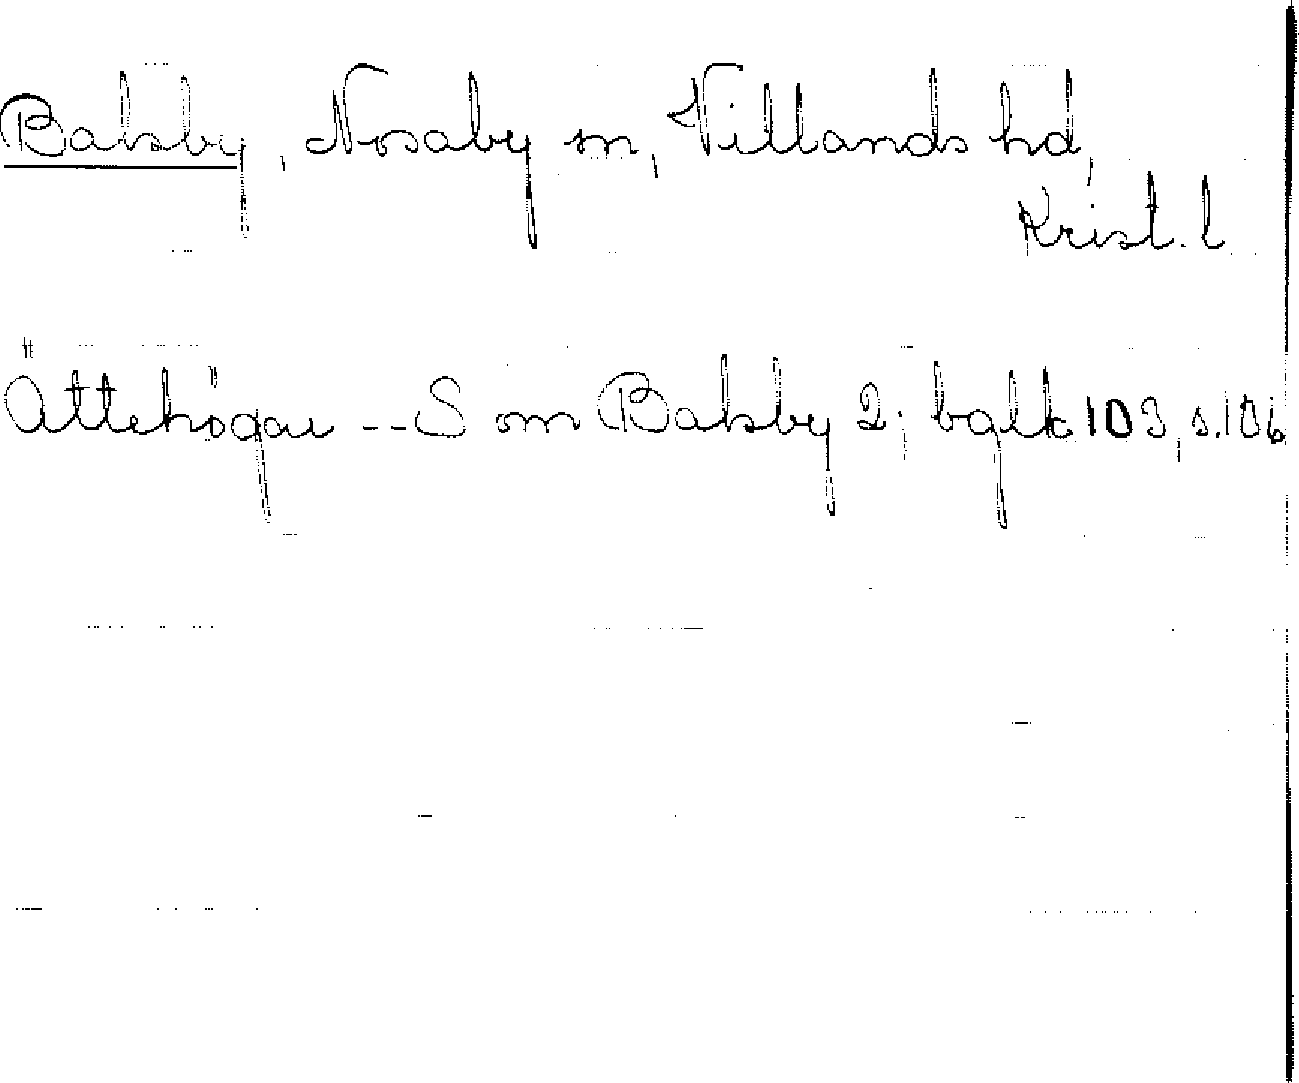 Balsby, Nosaby sn, Villands hd,
Krist. l
Ättehögar -- S om Balsby 2; bglk 103, s. 106